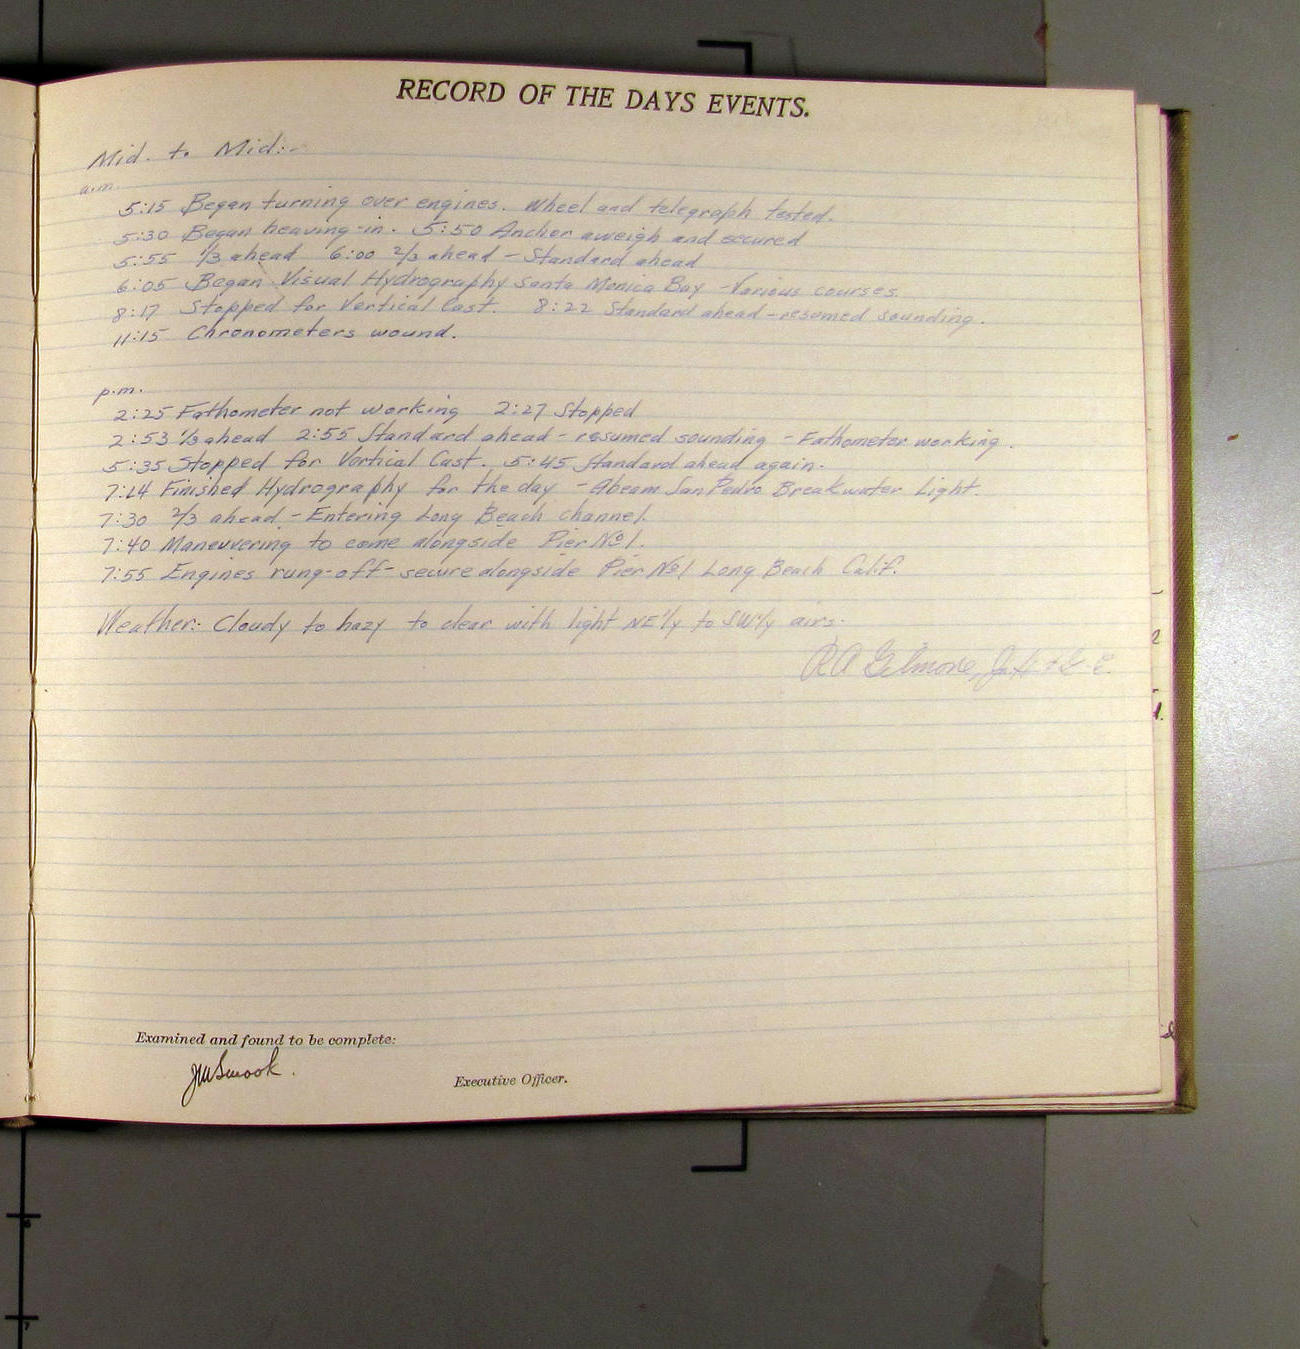 RECORD OF THE DAYS EVENTS.
Mid. to Mid:-
a.m.
5:15 Began turning over engines. Wheel and telegraph tested.
5:30 Began heaving-in. 5:50 Anchor aweigh and secured
5:55 1/3 ahead 6:00 2/3 ahead - Standard ahead
6:05 Began Visual Hydrography Santa Monica Bay - Various courses.
8:17 Stopped for Vertical Cast. 8:22 Standard ahead - resumed sounding.
11:15 Chronometers wound.
p.m.
2:25 Fathometer not working 2:27 Stopped
2:53 1/3 ahead 2:55 Standard ahead - resumed sounding - Fathometer working.
5:35 Stopped for Vertical Cast. 5:45 Standard ahead again.
7:14 Finished Hydrography for the day - Abeam San Pedro Breakwater Light.
7:30 2/3 ahead - Entering Long Beach channel.
7:40 Maneuvering to come alongside Pier No 1.
7:55 Engines rung-off - secure alongside Pier No 1 Long Beach Calif.
Weather: Cloudy to hazy to clear with light NE'ly to SW'ly airs.
R A Gilmore, Jr. H. & G. E.
Examined and found to be complete:
JM Smook.
Executive Officer.